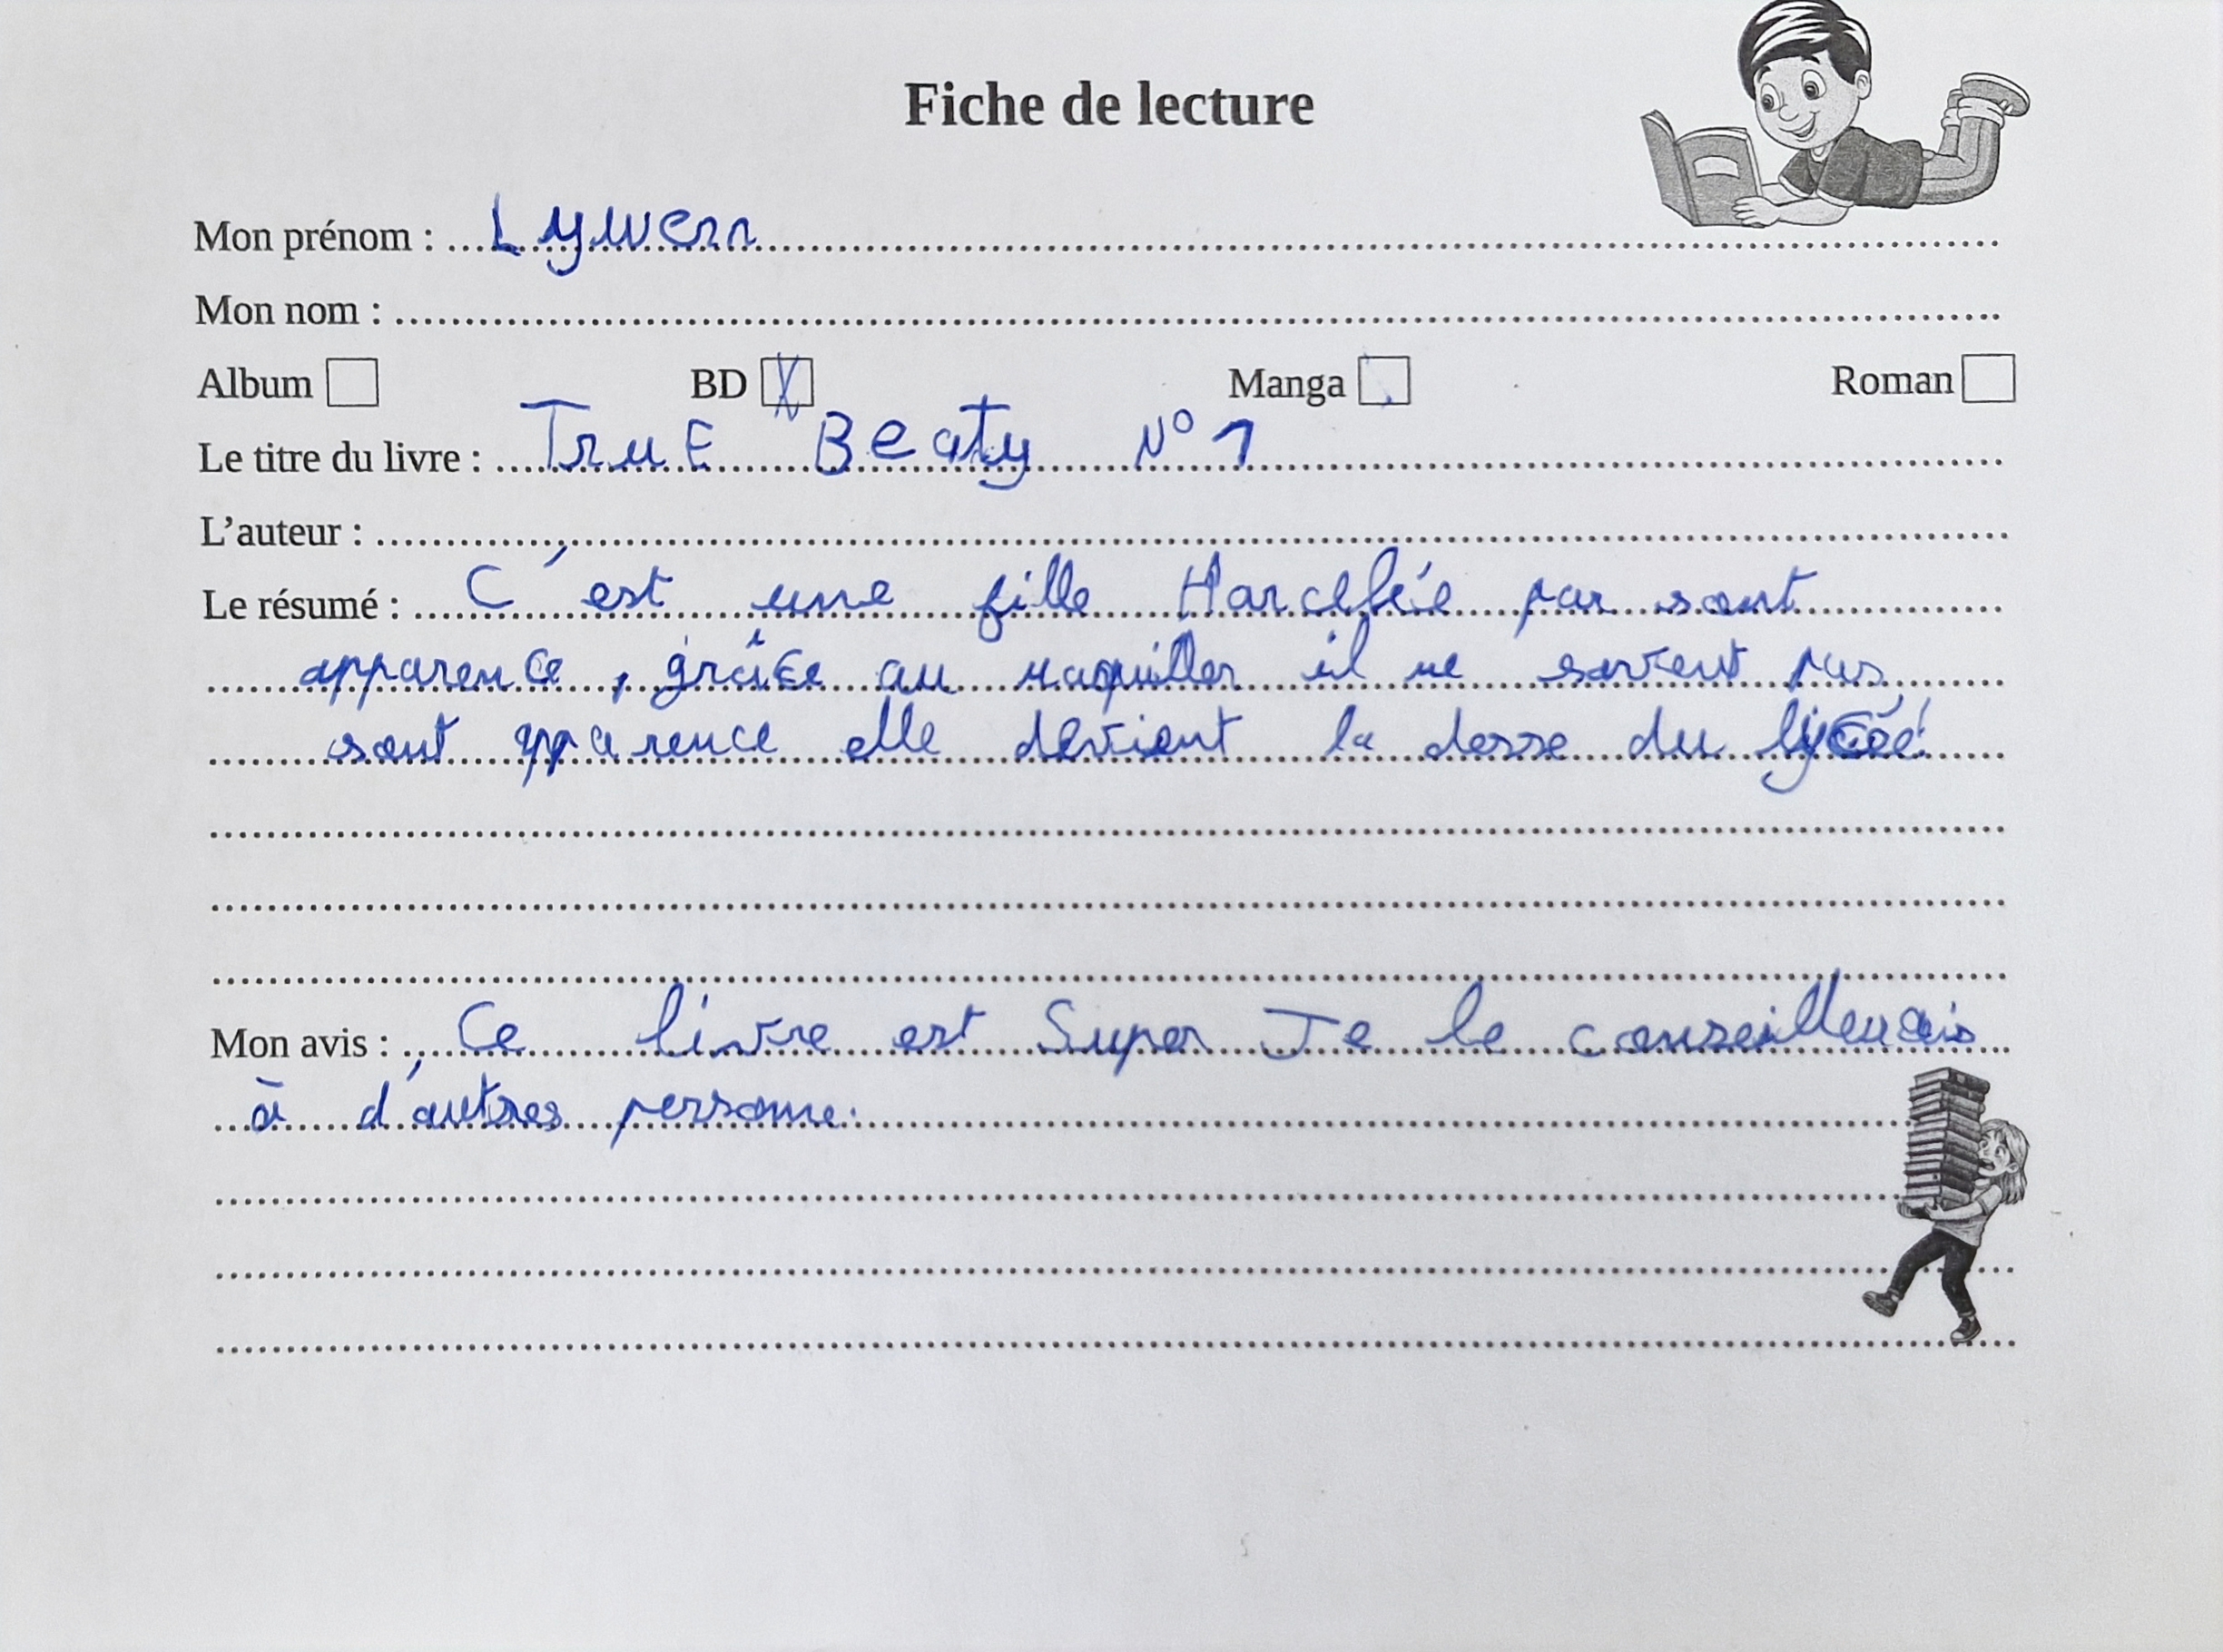 Fiche de lecture
Mon prénom : Lywenn
Mon nom :
Album BD X Manga Roman
Le titre du livre : TruE Beaty N° 1
L'auteur :
Le résumé : C'est une fille Harcelée par sont
apparence, grâce au maquiller il ne savent pas
sont apparence elle devient la desse du lycée!
Mon avis : Ce livre est Super Je le
à d'autres personne.